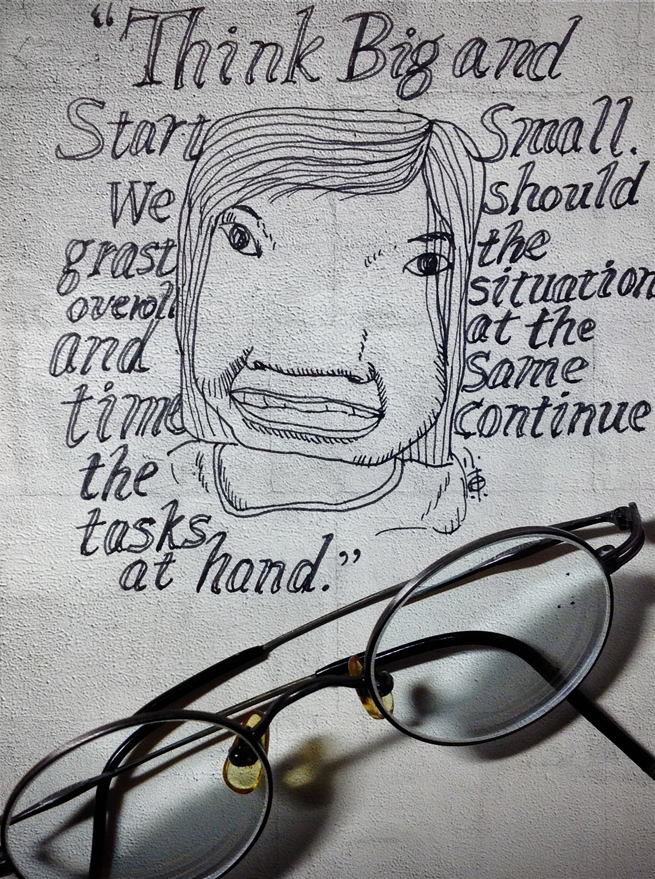 “Think Big and
Start Small.
We should
grast the
overoll situation
and at the
time Same
the continue
tasks
at hand.”